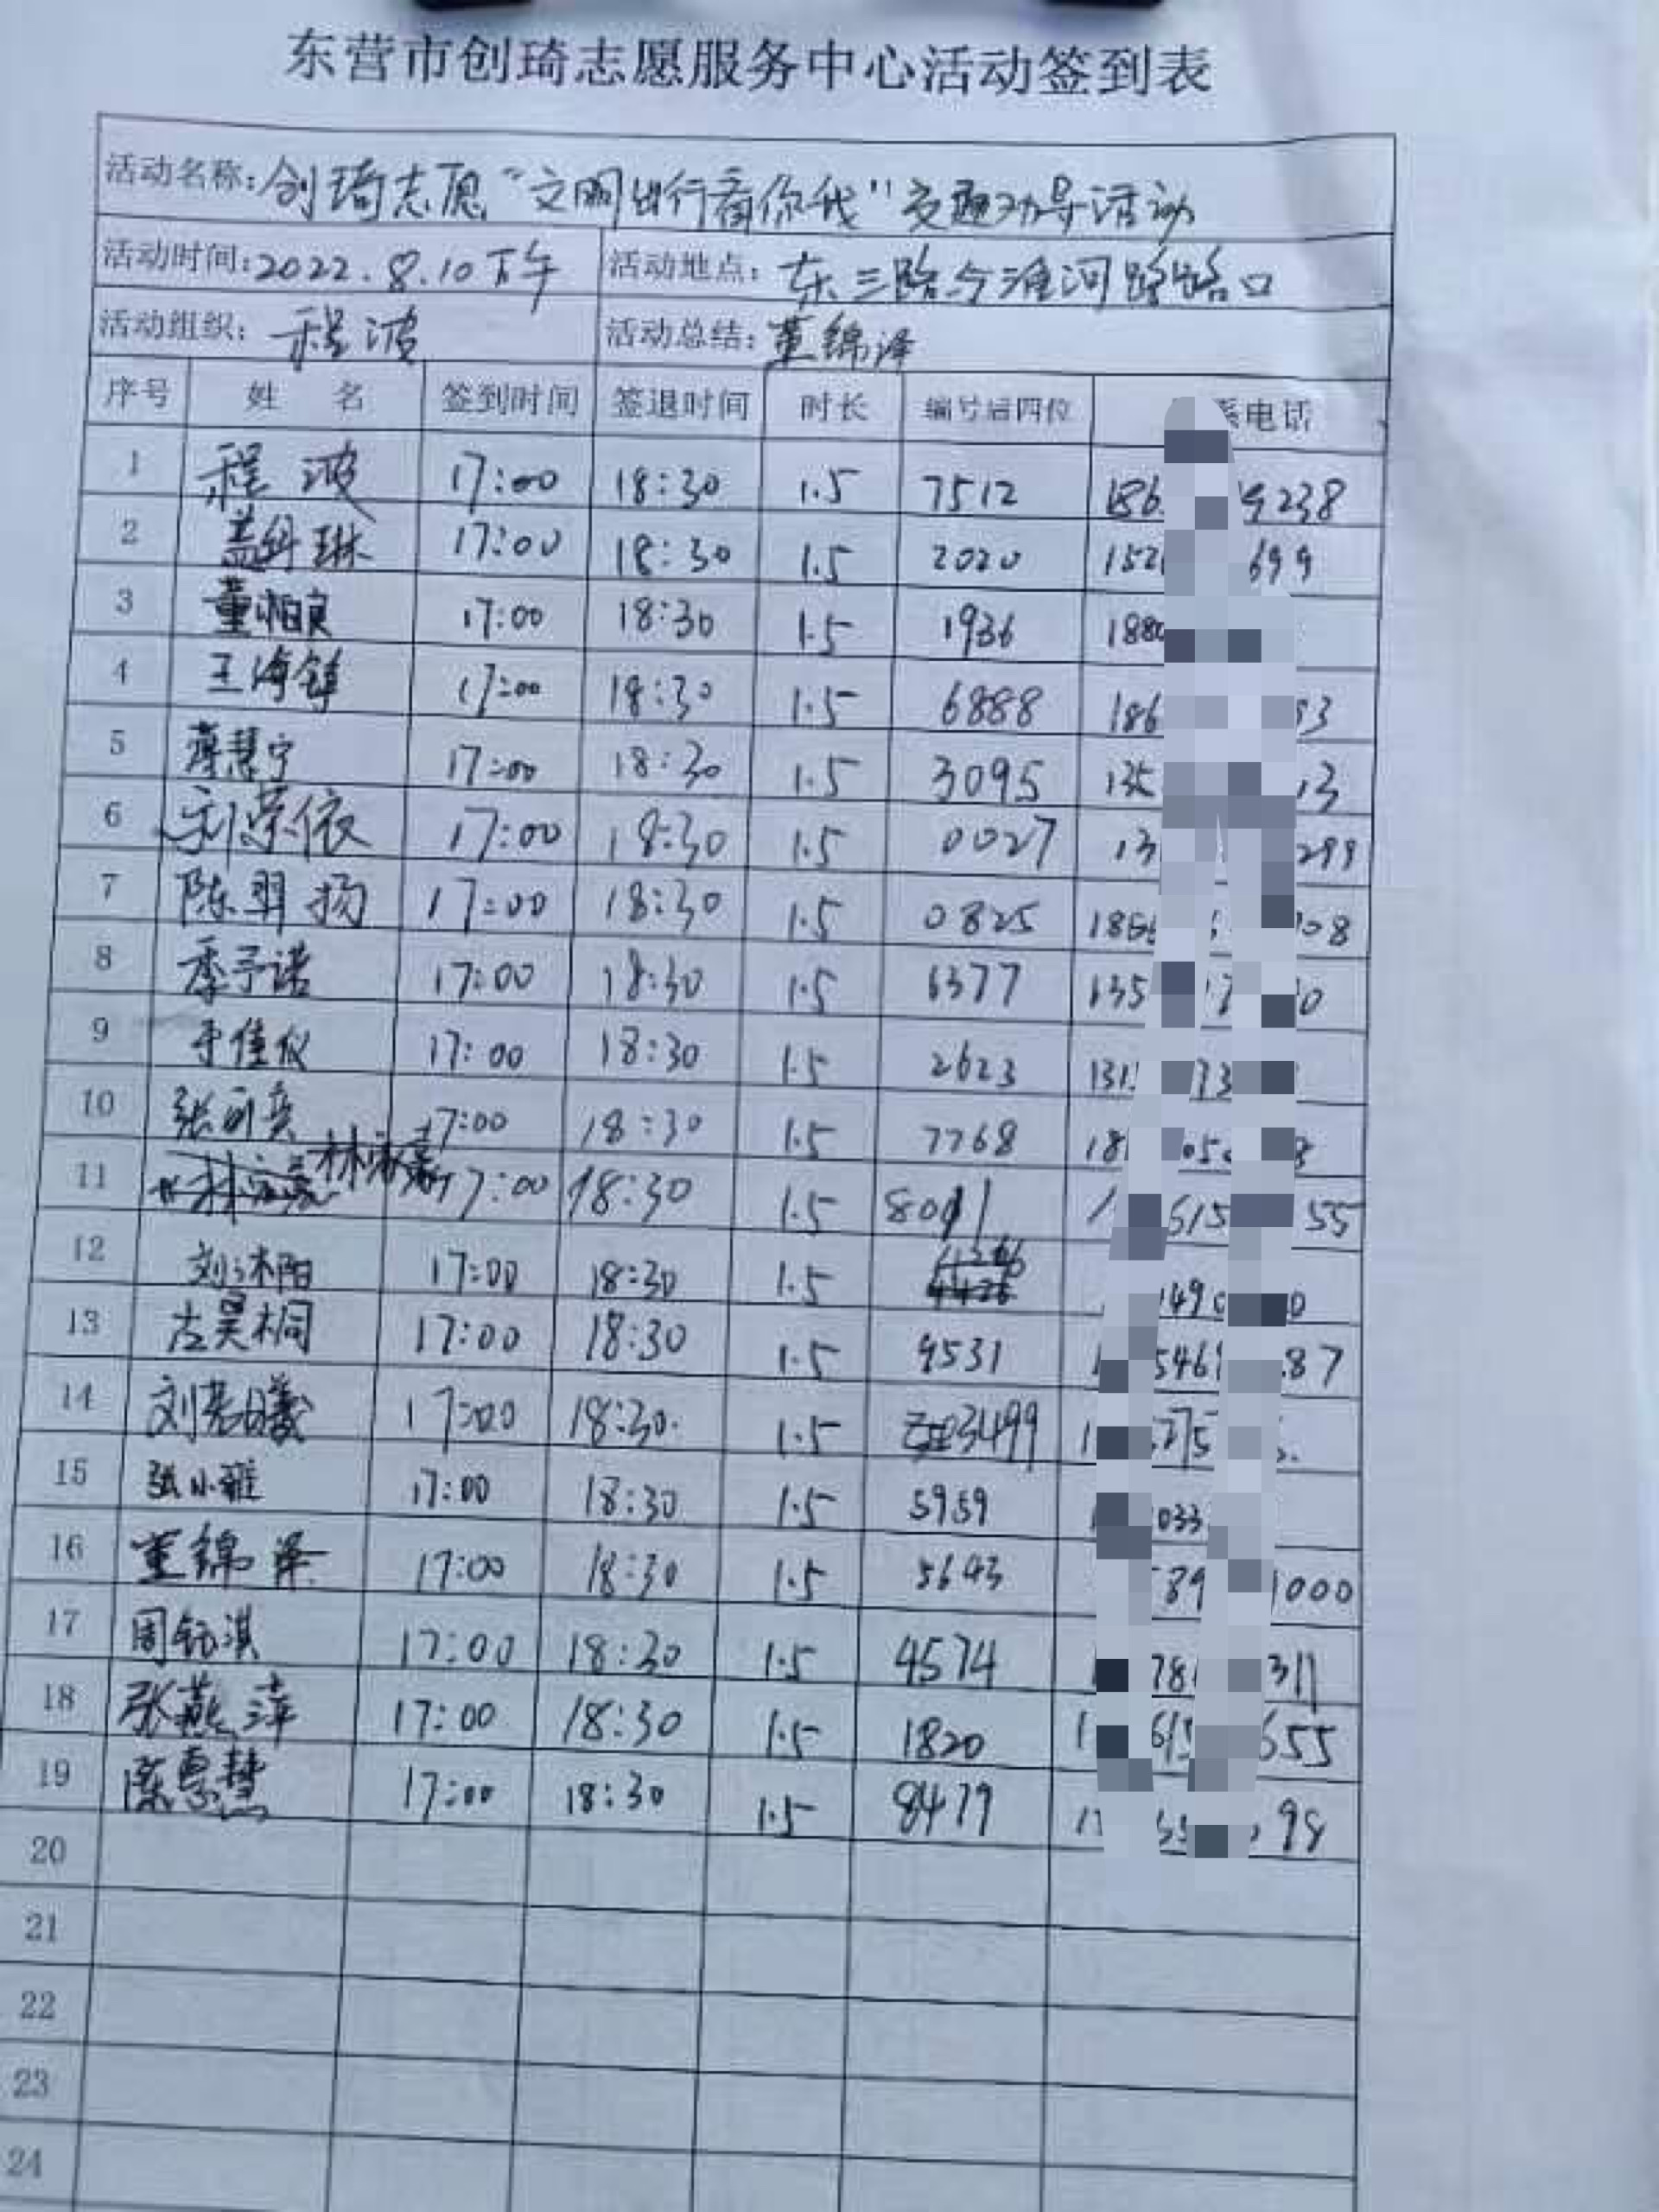 东营市创琦志愿服务中心活动签到表
活动名称:创琦志愿"文明出行看你我"交通劝导活动
活动时间:2022.8.10下午 活动地点:东三路与淮河路路口
活动组织:程波 活动总结:董锦泽
序号 姓 名 签到时间 签退时间 时长 编号后四位 系电话
1 程波 17:00 18:30 1.5 7512 186 9238
2 17:00 18:30 1.5 2020 152 699
3 17:00 18:30 1.5 1936 188
4 王海 17:00 18:30 1.5 6888 186 3
5 慧宁 17:00 18:30 1.5 3095 135 13
6 依 17:00 18:30 1.5 0027 13 299
7 陈羿扬 17:00 18:30 1.5 0825 186 08
8 季予诺 17:00 18:30 1.5 6377 135 0
9 于佳仪 17:00 18:30 1.5 2623 131 3
10 张 17:00 18:30 1.5 7768 18 05
11 林 17:00 18:30 1.5 8011 1 615 55
12 刘沐阳 17:00 18:30 1.5 149 0
13 昊桐 17:00 18:30 1.5 9531 546 87
14 刘 曦 17:00 18:30 1.5 3499 1 275
15 张小雅 17:00 18:30 1.5 5959 033
16 董锦泽 17:00 18:30 1.5 5643 89 1000
17 周钰淇 17:00 18:30 1.5 4574 78 311
18 张燕萍 17:00 18:30 1.5 1820 1 615 655
19 陈惠慧 17:00 18:30 1.5 8479 1 98
20
21
22
23
24